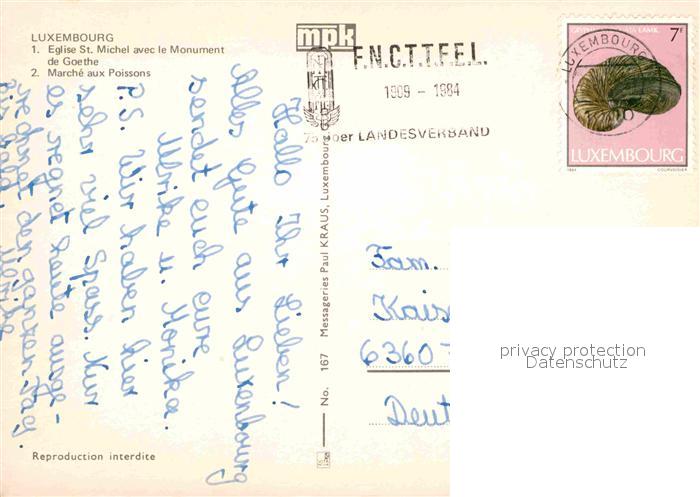 LUXEMBOURG
1. Eglise St. Michel avec le Monument
de Goethe
2. Marché aux Poissons
mpk
F.N.C.T.T.F.E.L.
1909 - 1984
LANDESVERBAND
LUXEMBOURG
7F
LUXEMBOURG
1984
COURVOISIER
Hallo Ihr Lieben!
Alles Gute aus Luxembourg
sendet euch eure
Ulrike u. Monika.
P.S. Wir haben hier
sehr viel Spass. Nur
es regnet heute ausge-
rechnet den ganzen Tag.
Bis bald
No. 167 Messageries Paul KRAUS, Luxembourg
Fam.
Kais
6360
Deut
privacy protection
Datenschutz
Reproduction interdite